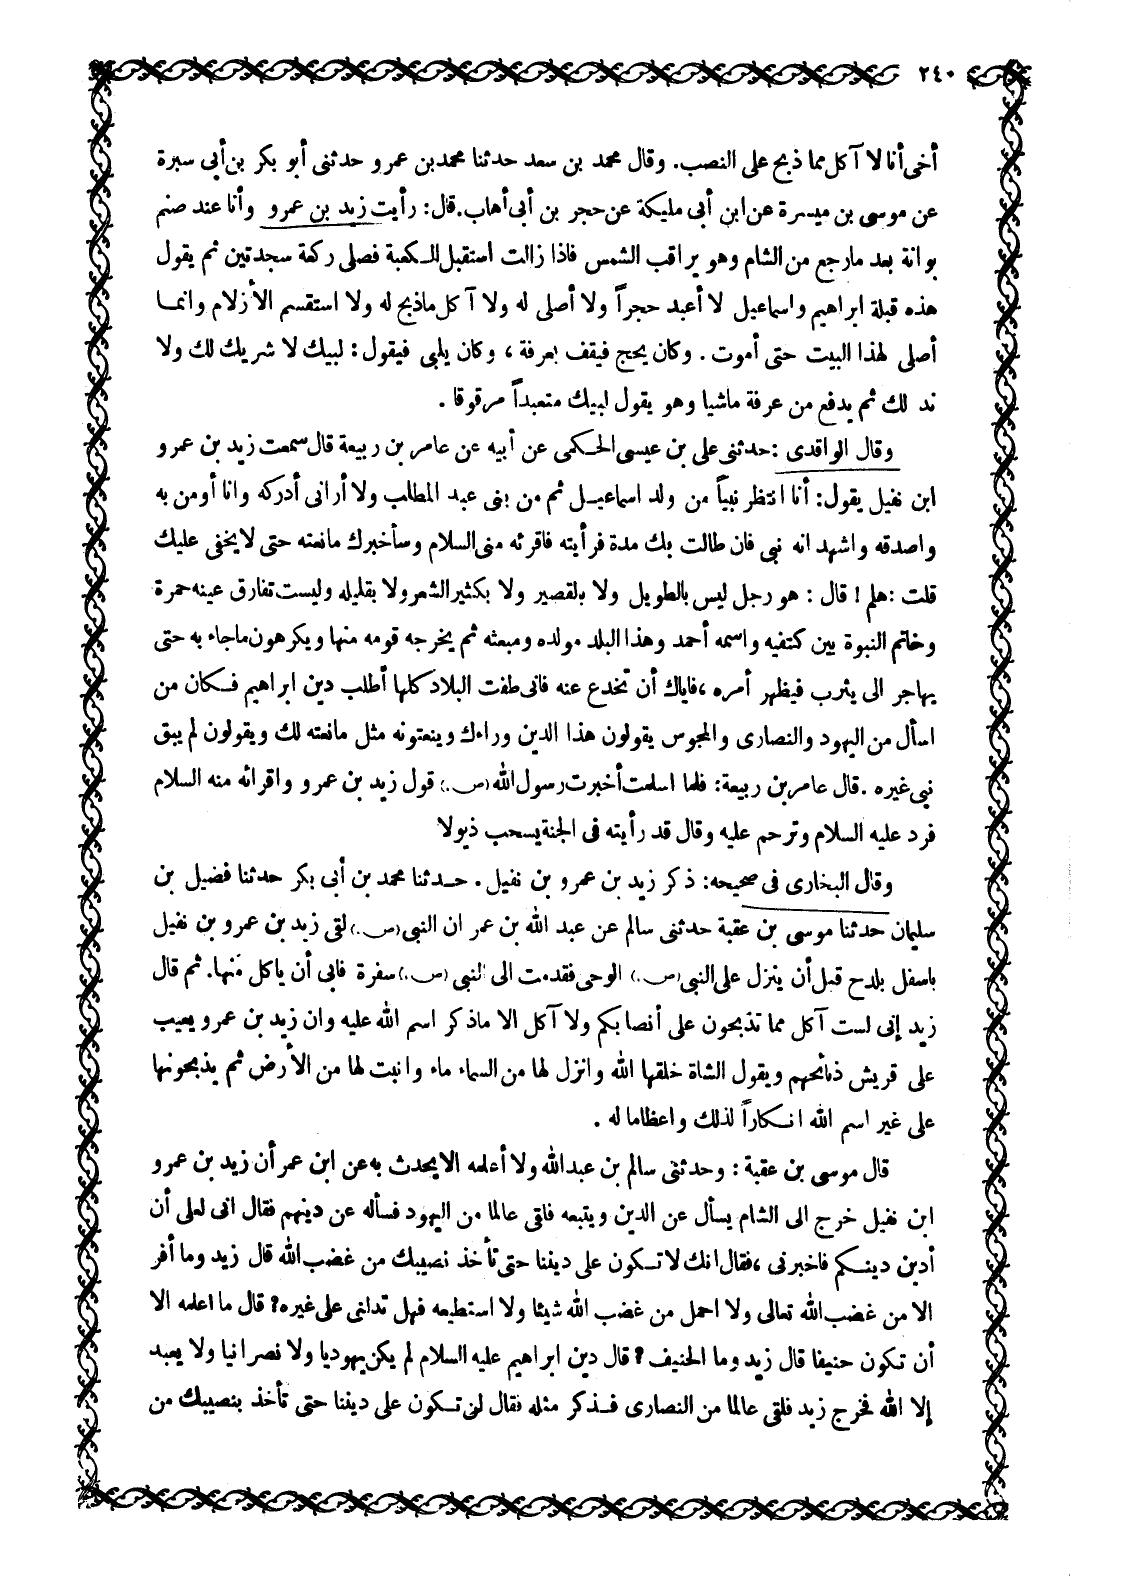 ٢٤٠
أخى أنا لا آكل مما ذبح على النصب. وقال محمد بن سعد حدثنا محمد بن عمرو حدثنى أبو بكر بن أبى سبرة
عن موسى بن ميسرة عن ابن أبى مليكة عن حجر بن أبى أهاب. قال: رأيت زيد بن عمرو وأنا عند صنم
بوانة بعد مارجع من الشام وهو يراقب الشمس فاذا زالت استقبل الكعبة فصلى ركعة سجدتين ثم يقول
هذه قبلة ابراهيم واسماعيل لا أعبد حجراً ولا أصلى له ولا آكل ماذبح له ولا استقسم الأزلام وانما
أصلى لهذا البيت حتى أموت. وكان يحج فيقف بعرفة، وكان يلبى فيقول: لبيك لا شريك لك ولا
ند لك ثم يدفع من عرفة ماشيا وهو يقول لبيك متعبداً مرقوقا.
وقال الواقدى: حدثنى على بن عيسى الحكمى عن أبيه عن عامر بن ربيعة قال سمعت زيد بن عمرو
ابن نفيل يقول: أنا انتظر نبياً من ولد اسماعيل ثم من بنى عبد المطلب ولا أرانى أدركه وانا أومن به
واصدقه واشهد انه نبى فان طالت بك مدة فرأيته فاقرئه منى السلام وسأخبرك مانعته حتى لا يخفى عليك
قلت: هلم! قال: هو رجل ليس بالطويل ولا بلقصير ولا بكثير الشعر ولا بقليله وليست تفارق عينه حمرة
وخاتم النبوة بين كتفيه واسمه أحمد وهذا البلد مولده ومبعثه ثم يخرجه قومه منها ويكرهون ماجاء به حتى
يهاجر الى يثرب فيظهر أمره، فاياك أن تخدع عنه فانى طفت البلاد كلها أطلب دين ابراهيم فكان من
اسأل من اليهود والنصارى والمجوس يقولون هذا الدين وراءك وينعتونه مثل مانعته لك ويقولون لم يبق
نبى غيره. قال عامر بن ربيعة: فلما اسلمت أخبرت رسول الله (ص.) قول زيد بن عمرو واقرائه منه السلام
فرد عليه السلام وترحم عليه وقال قد رأيته فى الجنة يسحب ذيولا
وقال البخارى فى صحيحه: ذكر زيد بن عمرو بن نفيل. حدثنا محمد بن أبى بكر حدثنا فضيل بن
سليمان حدثنا موسى بن عقبة حدثنى سالم عن عبد الله بن عمر ان النبى (ص.) لقى زيد بن عمرو بن نفيل
باسفل بلدح قبل أن ينزل على النبى (ص.) الوحى فقدمت الى النبى (ص.) سفرة فابى أن ياكل منها. ثم قال
زيد إنى لست آكل مما تذبحون على أنصابكم ولا آكل الا ماذكر اسم الله عليه وان زيد بن عمرو يعيب
على قريش ذبائحهم ويقول الشاة خلقها الله وانزل لها من السماء ماء وانبت لها من الأرض ثم يذبحونها
على غير اسم الله انكاراً لذلك واعظاما له.
قال موسى بن عقبة: وحدثنى سالم بن عبد الله ولا أعلمه الا يحدث به عن ابن عمر أن زيد بن عمرو
ابن نفيل خرج الى الشام يسأل عن الدين ويتبعه فلقى عالما من اليهود فسأله عن دينهم فقال انى لعلى أن
أدين دينكم فاخبرنى، فقال انك لا تكون على ديننا حتى تأخذ نصيبك من غضب الله قال زيد وما أفر
الا من غضب الله تعالى ولا احمل من غضب الله شيئا ولا استطيعه فهل تدلنى على غيره؟ قال ما اعلمه الا
أن تكون حنيفا قال زيد وما الحنيف؟ قال دين ابراهيم عليه السلام لم يكن يهوديا ولا نصرانيا ولا يعبد
إلا الله فخرج زيد فلقى عالما من النصارى فذكر مثله فقال لن تكون على ديننا حتى تأخذ بنصيبك من